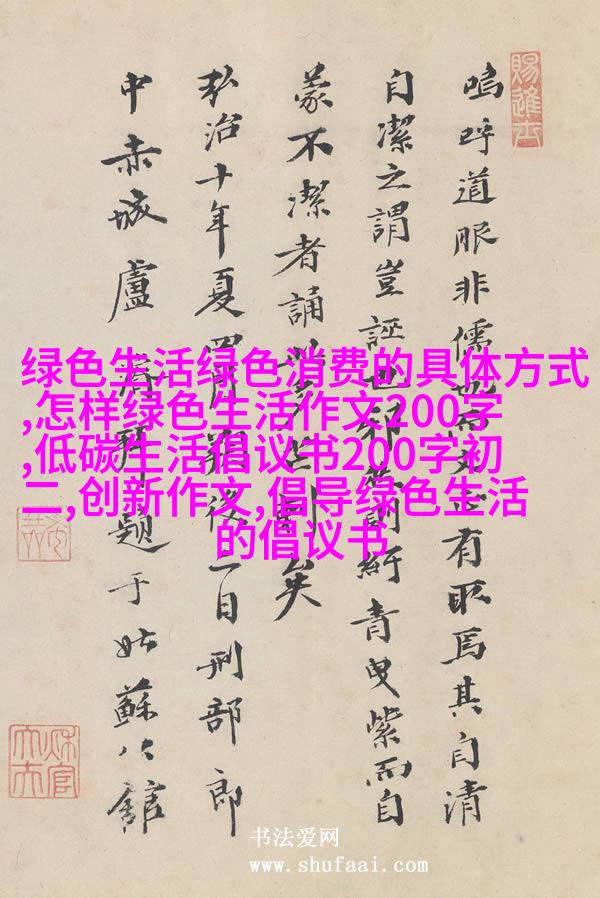 绿色生活绿色消费的具体方式
,怎样绿色生活作文200字
,低碳生活倡议书200字初
二,创新作文,倡导绿色生活
的倡议书
賜進士
嗚呼道服非儒也而文士有取焉其自清
自潔之謂豈誣也邪紆青曳紫而自
蒙不潔者誦此矣
弘治十年夏四月後二日刑部郎
中赤城盧濬拜題于姑蘇公館
书法爱网
www.shufaai.com